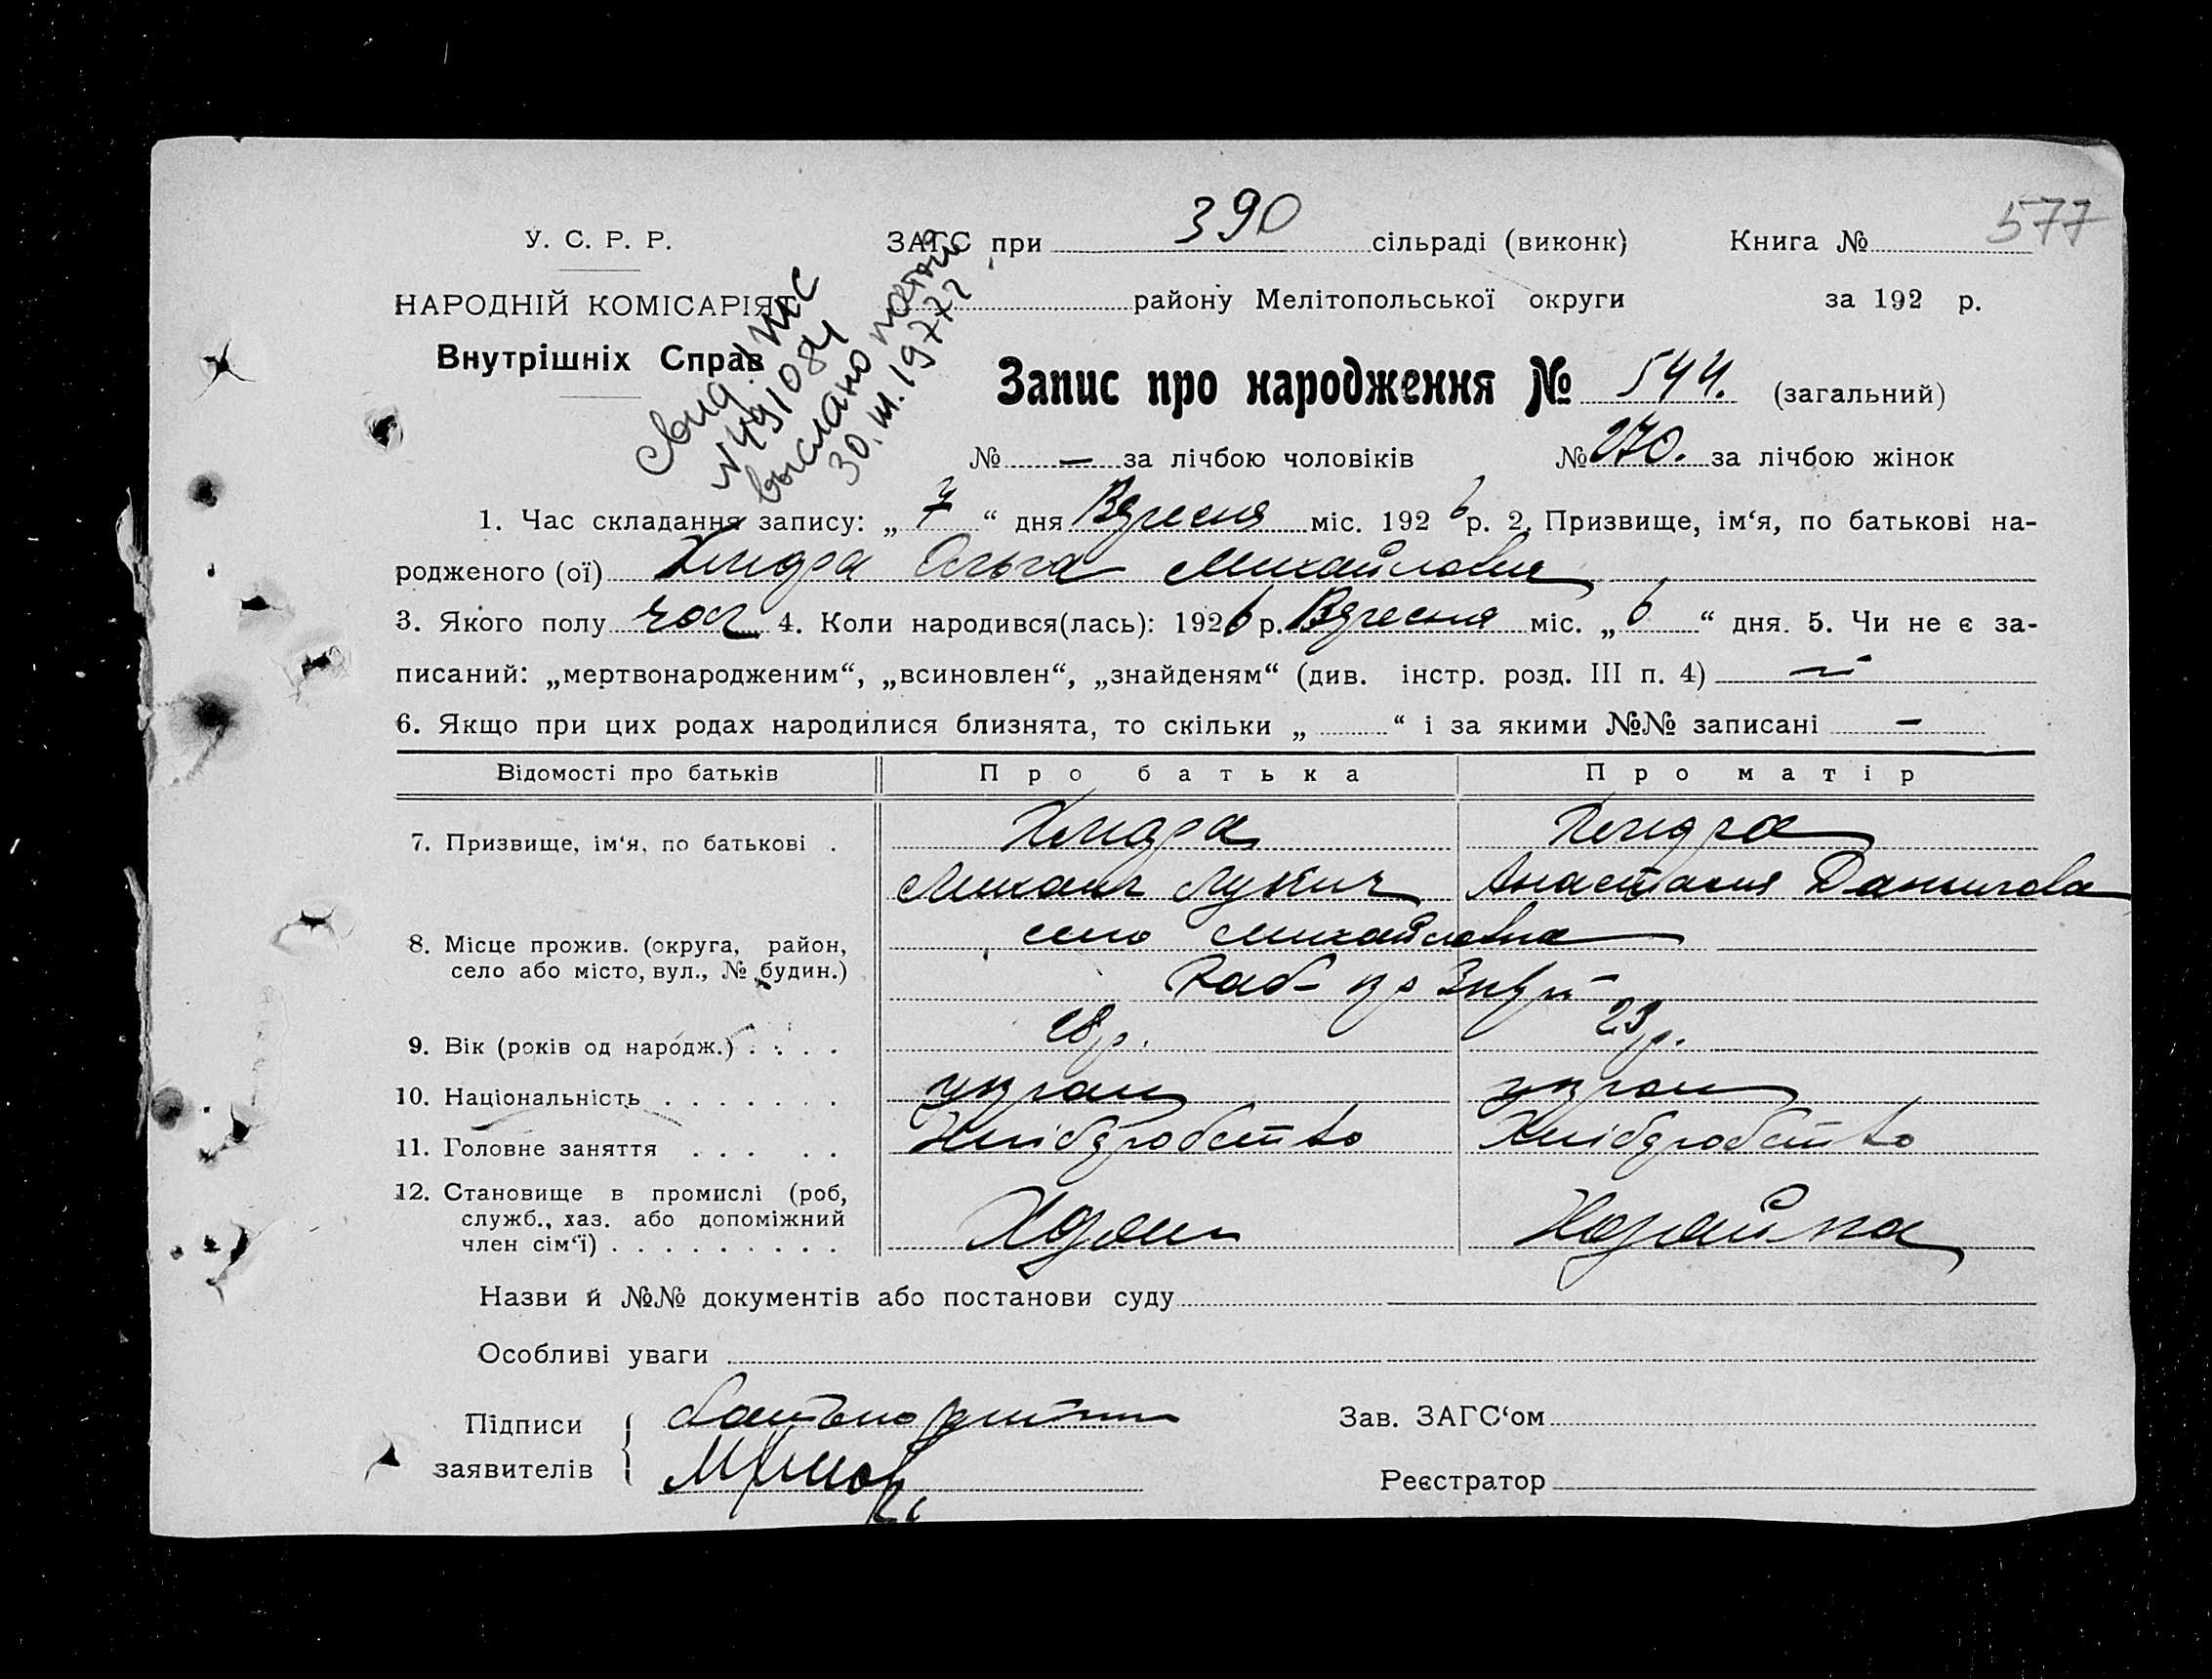 390
577
У. С. Р. Р.
ЗАГС при сільраді (виконк) Книга №
НАРОДНІЙ КОМІСАРІЯТ
району Мелітопольської округи за 192 р.
Внутрішніх Справ
Свид.
выслано почтой
30.III.1977г
Запис про народження № 544. (загальний)
№ — за лічбою чоловіків № 270. за лічбою жінок
1. Час складання запису: „ 7 “ дня Вересня міс. 192 6 р. 2. Призвище, ім‘я, по батькові на-
родженого (ої) Ольга Михайловна
3. Якого полу 4. Коли народився(лась): 1926 р. Вересня міс. „ 6 “ дня. 5. Чи не є за-
писаний: „мертвонародженим“, „всиновлен“, „знайденям“ (див. інстр. розд. III п. 4)
6. Якщо при цих родах народилися близнята, то скільки „ “ і за якими №№ записані —
Відомості про батьків Про батька Про матір
7. Призвище, ім‘я, по батькові .
Михаил Лукич Анастасия Данилова
8. Місце прожив. (округа, район, село Михайловка
село або місто, вул., № будин.)
9. Вік (років од народж.) . . . . 28 р. 23 р.
10. Національність . . . . . . . украин украин
11. Головне заняття . . . . . Хлібробство Хлібробство
12. Становище в промислі (роб,
служб., хаз. або допоміжний
член сім‘ї) . . . . . . . . . Хазяїн Хазяйка
Назви й №№ документів або постанови суду
Особливі уваги
Підписи
заявителів
Зав. ЗАГС‘ом
Реєстратор